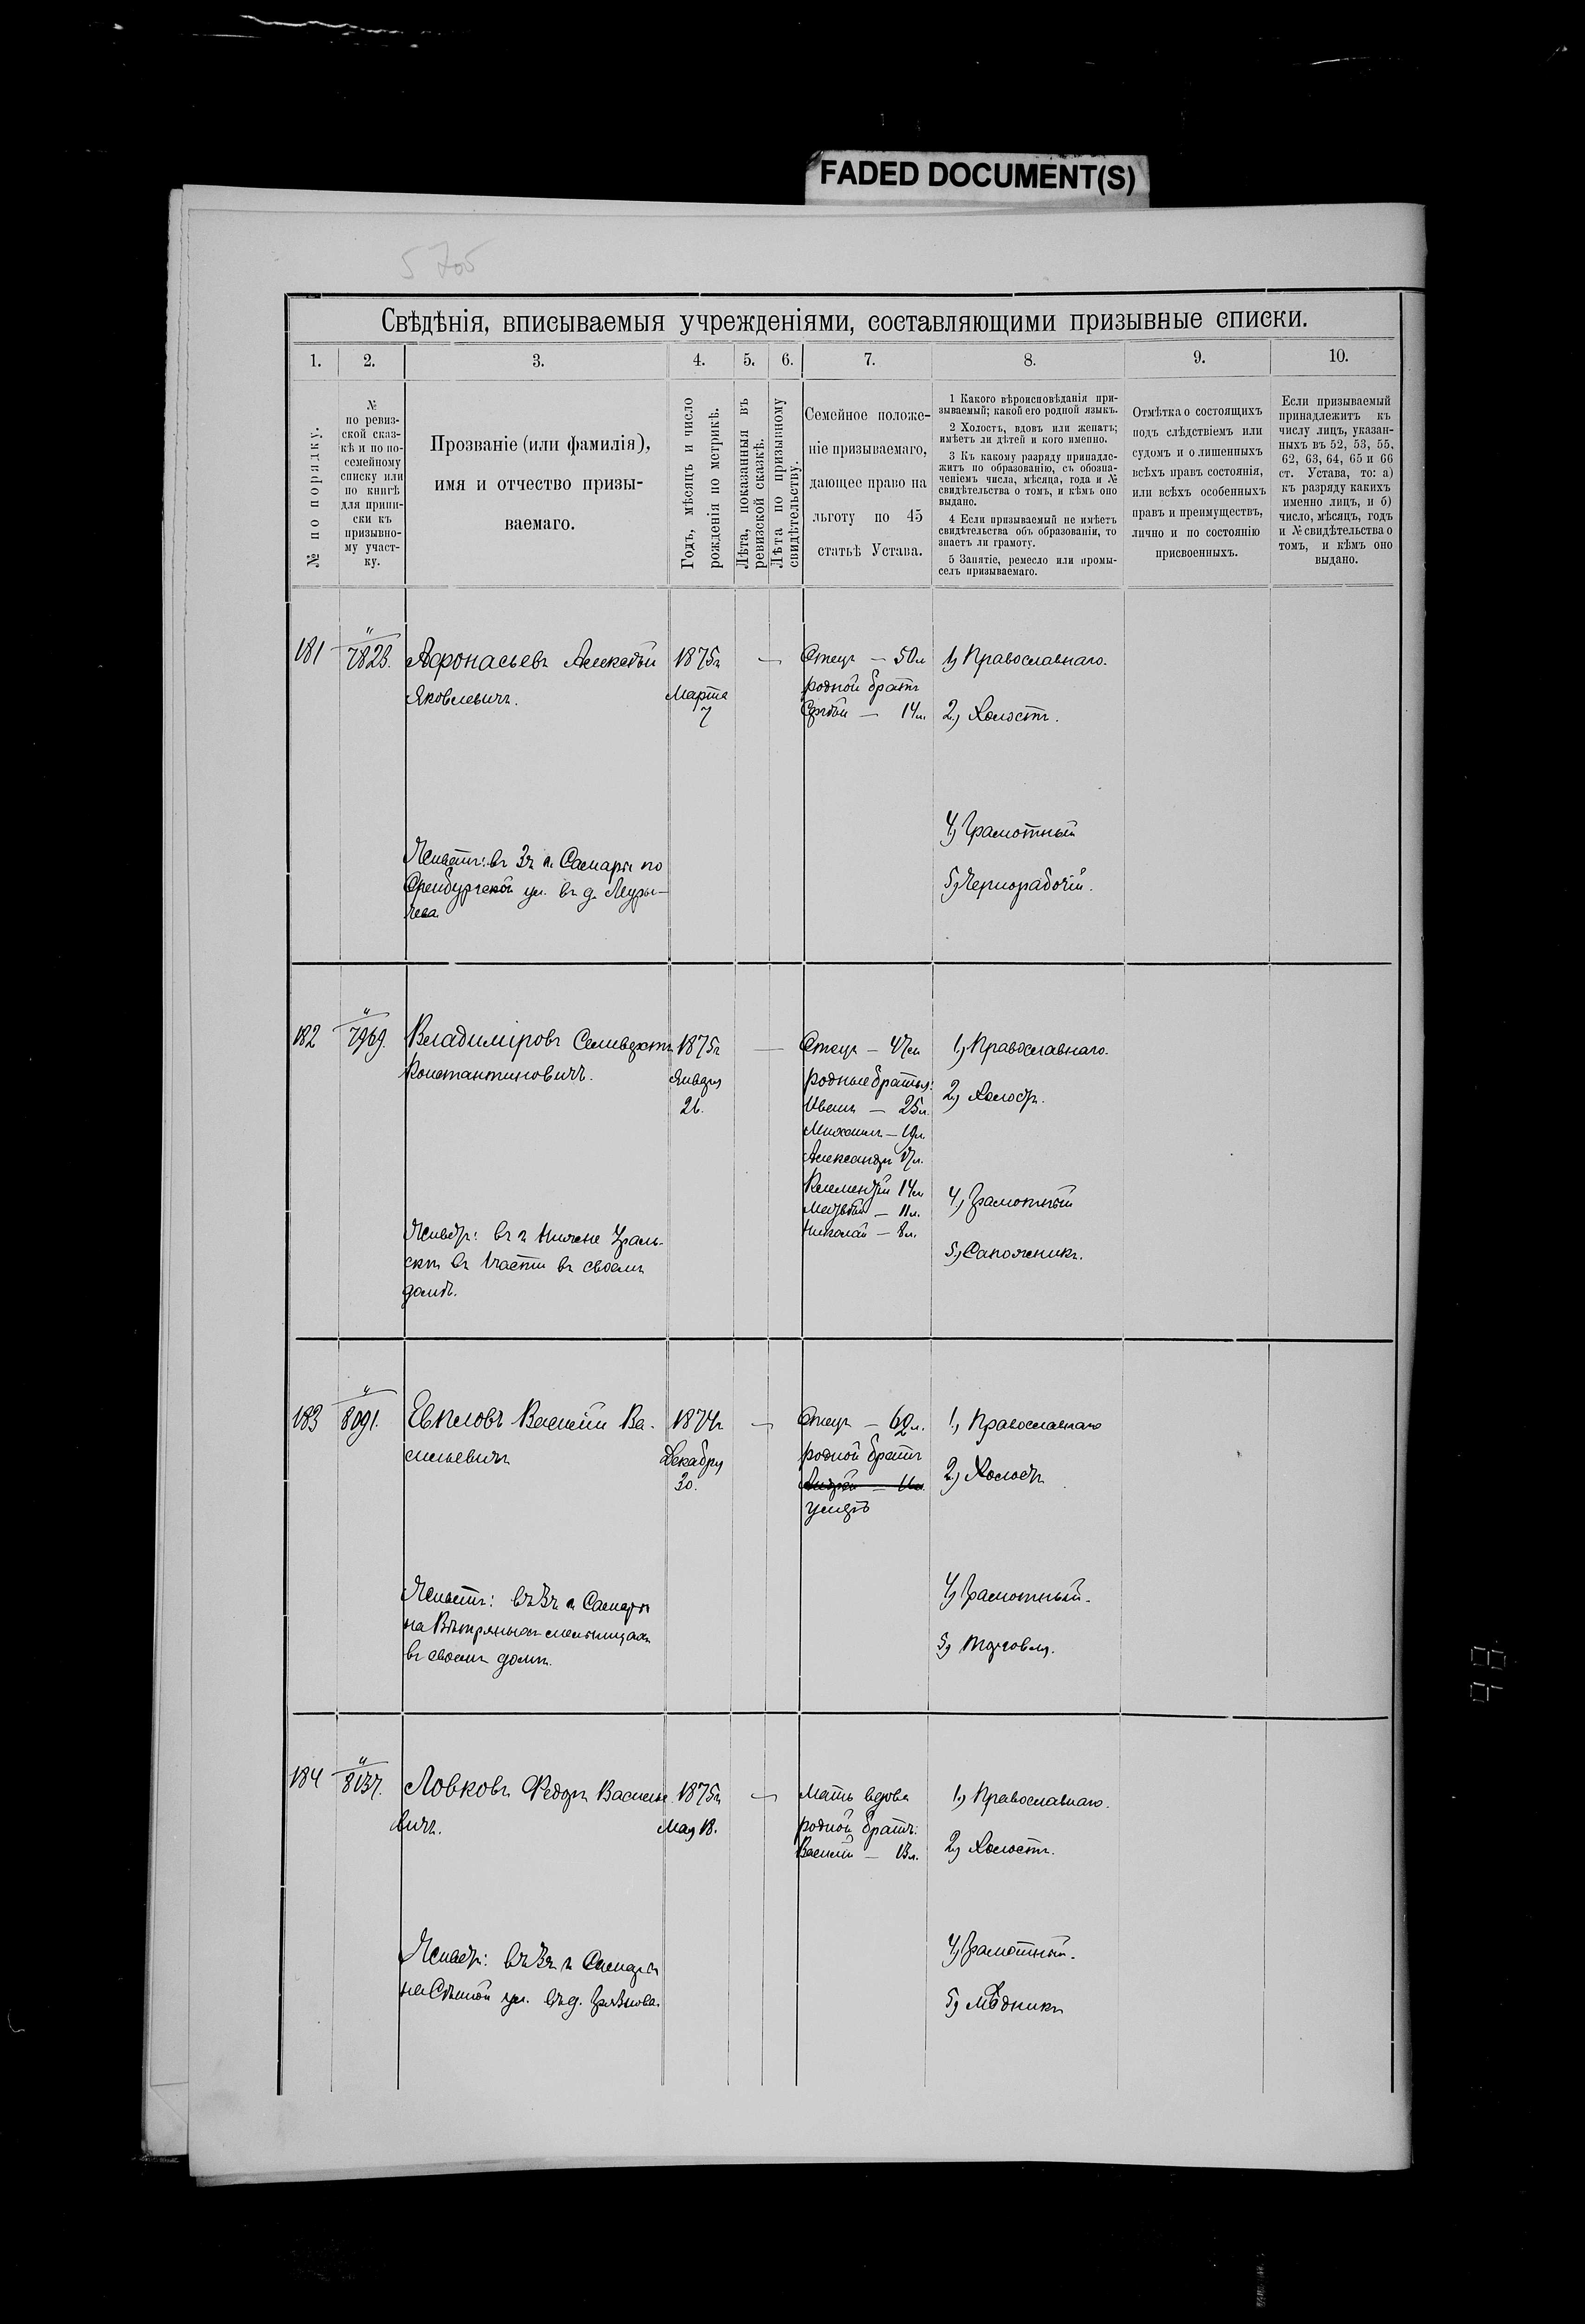 FADED DOCUMENT(S)
5705
Свѣдѣнія, вписываемыя учрежденіями, составляющими призывные списки.
1.
2.
3.
4.
5.
6.
7.
8.
9.
10.
№ по порядку.
№
по ревиз-
ской сказ-
кѣ и по по-
семейному
списку или
по книгѣ
для припи-
ски къ
призывно-
му участ-
ку.
Прозваніе (или фамилія),
имя и отчество призы-
ваемаго.
Годъ, мѣсяцъ и число
рожденія по метрикѣ.
Лѣта, показанныя въ
ревизской сказкѣ.
Лѣта по призывному
свидѣтельству.
Семейное положе-
ніе призываемаго,
дающее право на
льготу по 45
статьѣ Устава.
1 Какого вѣроисповѣданія при-
зываемый; какой его родной языкъ.
2 Холостъ, вдовъ или женатъ;
имѣетъ ли дѣтей и кого именно.
3 Къ какому разряду принадле-
житъ по образованію, съ обозна-
ченіемъ числа, мѣсяца, года и №
свидѣтельства о томъ, и кѣмъ оно
выдано.
4 Если призываемый не имѣетъ
свидѣтельства объ образованіи, то
знаетъ ли грамоту.
5 Занятіе, ремесло или промы-
селъ призываемаго.
Отмѣтка о состоящихъ
подъ слѣдствіемъ или
судомъ и о лишенныхъ
всѣхъ правъ состоянія,
или всѣхъ особенныхъ
правъ и преимуществъ,
лично и по состоянію
присвоенныхъ.
Если призываемый
принадлежитъ къ
числу лицъ, указан-
ныхъ въ 52, 53, 55,
62, 63, 64, 65 и 66
ст. Устава, то: а)
къ разряду какихъ
именно лицъ, и б)
число, мѣсяцъ, годъ
и № свидѣтельства о
томъ, и кѣмъ оно
выдано.
181
"
7823.
Афонасьевъ Алексѣй
Яковлевичъ.
1875г
Марта
7
—
Отецъ — 50л
родной братъ
Сергѣй — 14л.
1) Православнаго.
2) Холостъ.
4) Грамотный
5) Чернорабочій.
Живетъ: въ 3ч г. Самары по
Оренбургской ул. въ д. Муры-
чева
182
"
7969.
Владиміровъ Селиверстъ
Константиновичъ.
1875г
Января
26.
—
Отецъ — 47л
родные братья:
Иванъ — 25л.
Михаилъ — 19л.
Александръ 17л.
Климентій 14л
Матвѣй — 11л.
Николай — 8л.
1) Православнаго.
2) Холостъ.
4) Грамотный
5) Сапожникъ.
Живетъ: въ г. Нижне Ураль-
скѣ въ 1 части въ своемъ
домѣ.
183
"
8091.
Евпловъ Василій Ва-
сильевичъ
1874г
Декабря
30.
—
Отецъ — 62л.
родной братъ
Андрей — 11л.
умеръ
1) Православнаго
2) Холостъ
4) Грамотный.
5) Торговля.
Живетъ: въ 3ч г. Самары
на Вѣтряныхъ мельницахъ
въ своемъ домѣ.
184
"
8137.
Ловковъ Федоръ Василье
вичъ.
1875г
Мая 18.
—
Мать вдова
родной братъ:
Василій — 13л.
1) Православнаго.
2) Холостъ.
4) Грамотный.
5) Мѣдникъ
Живетъ: въ 3ч г. Самары
на Сѣнной ул. въ д. Грязнова.
98.